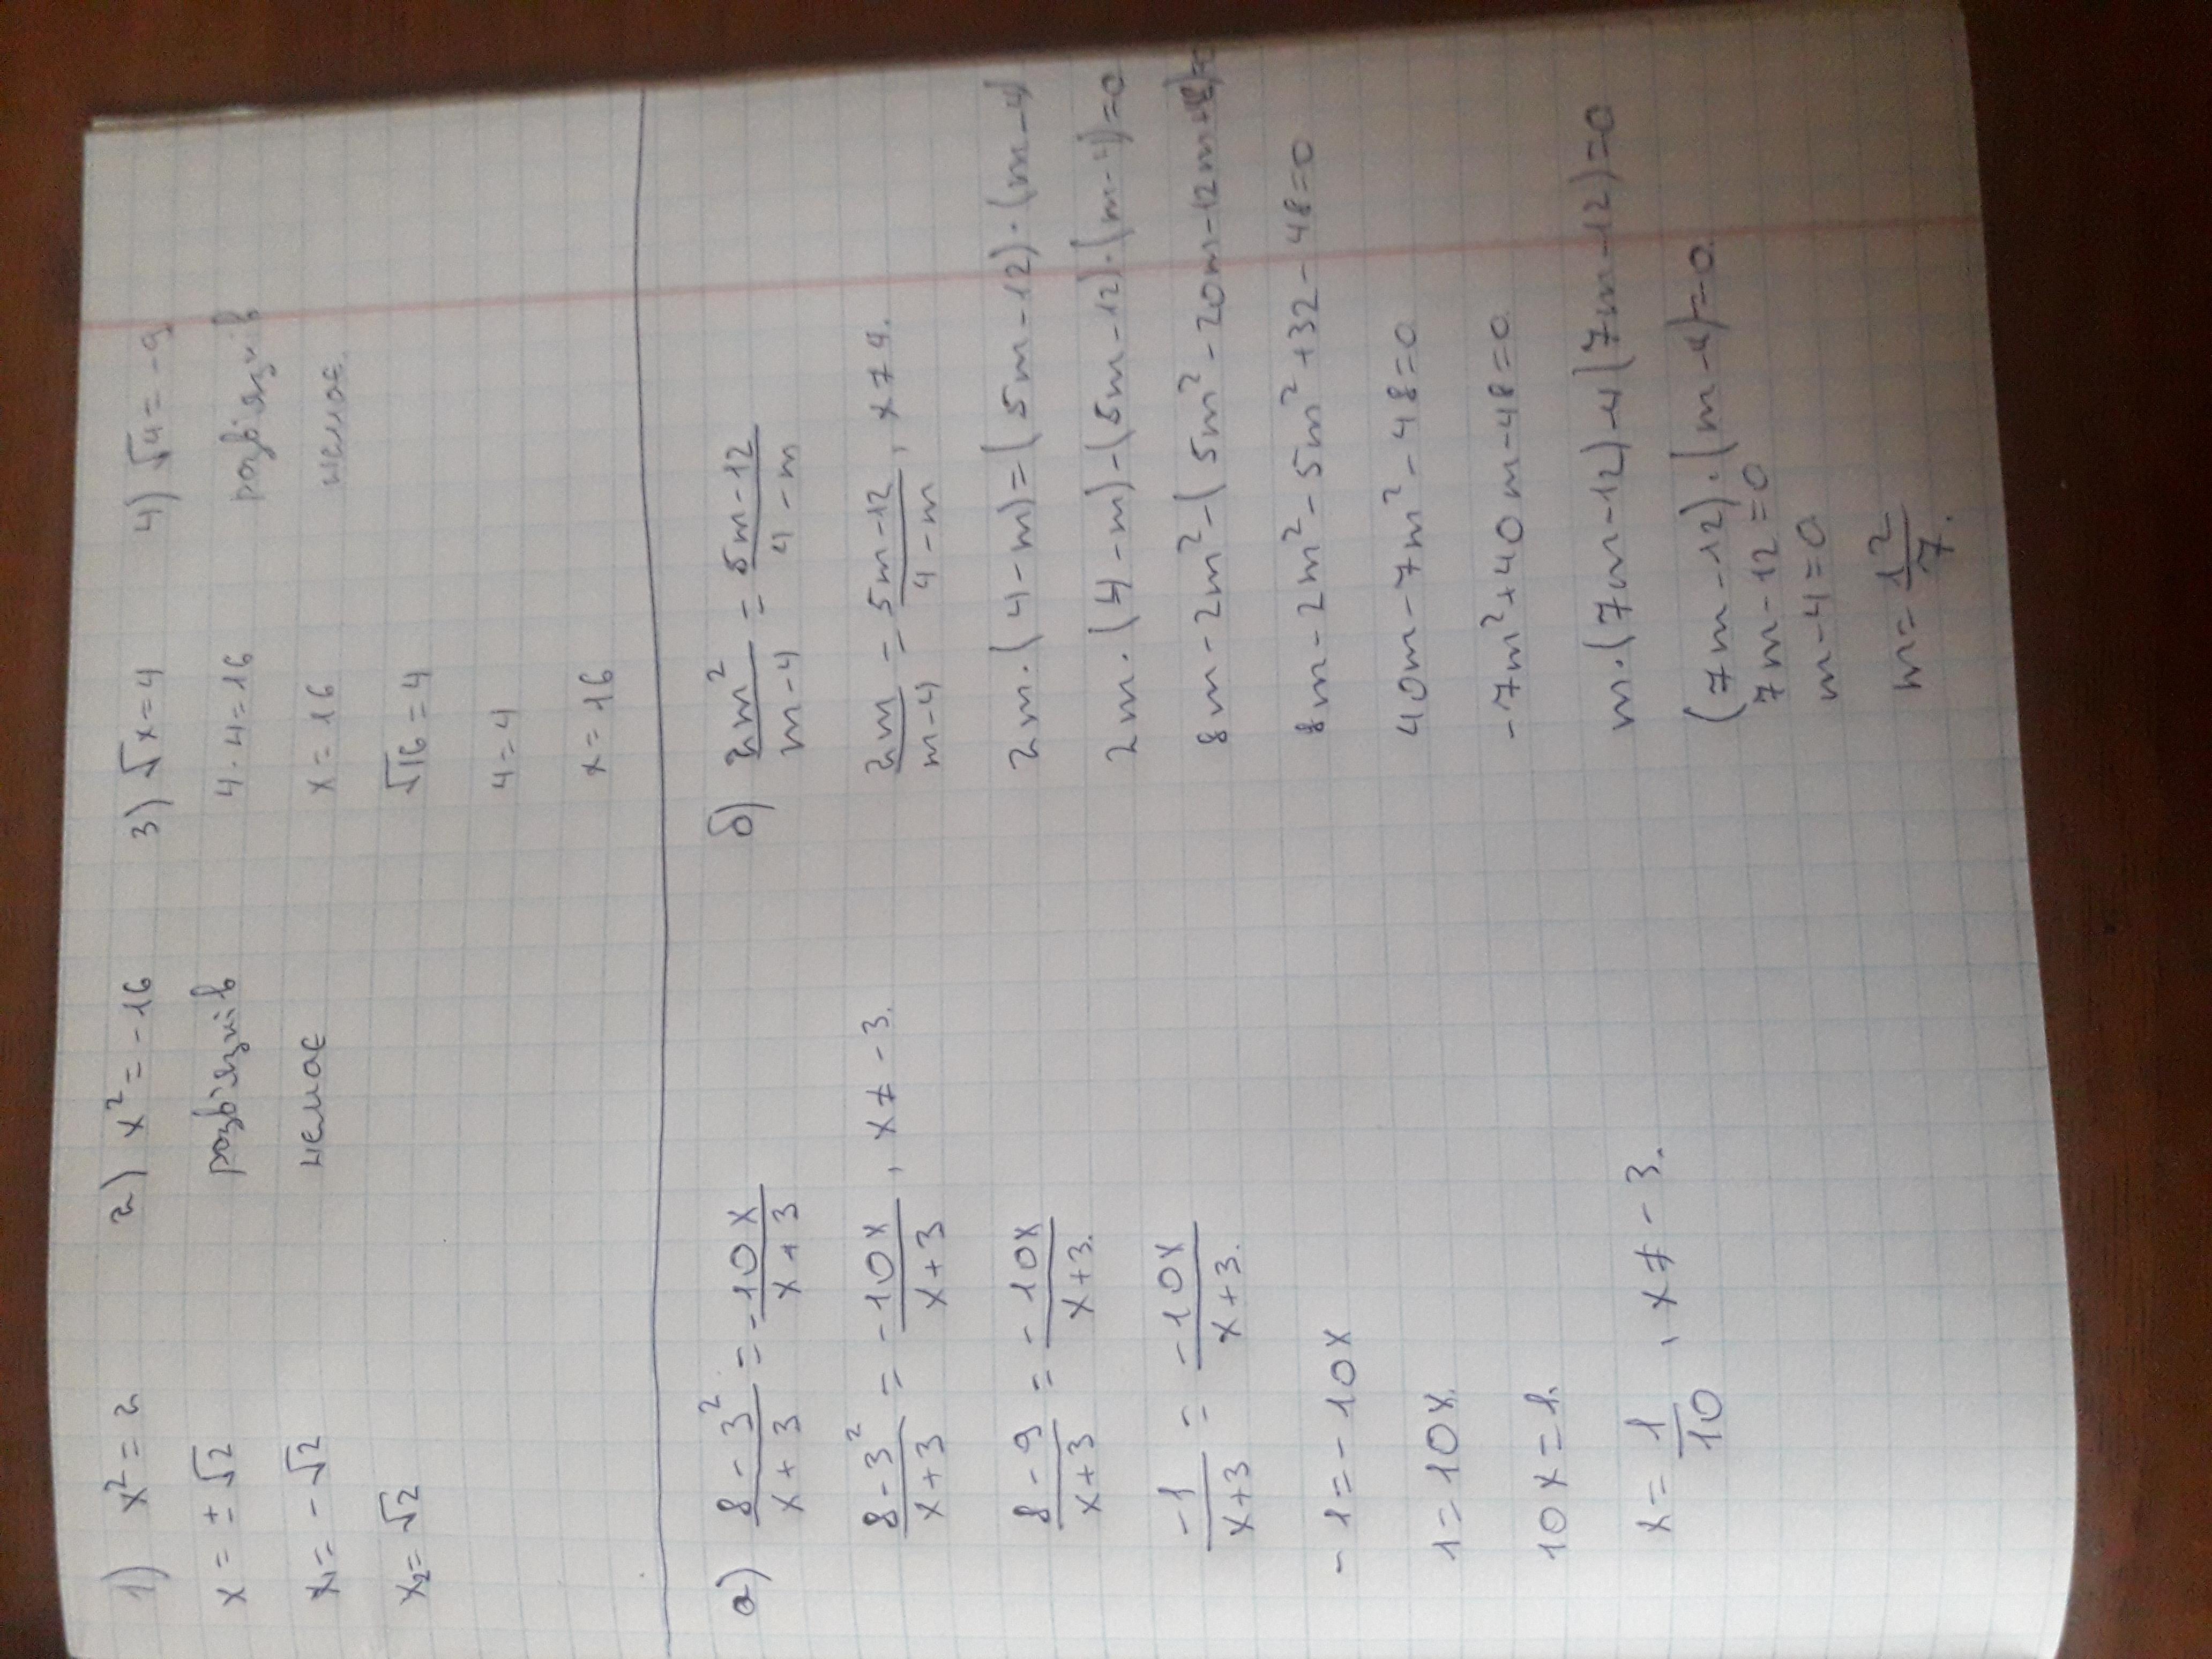 1) x² = 2
x = ± √2
x₁ = - √2
x₂ = √2
2) x² = - 16
розв'язків
немає
3) √x = 4
4 · 4 = 16
x = 16
√16 = 4
4 = 4
x = 16
4) √4 = - 9
розв'язків
немає.
а) (8 - 3²)/(x + 3) = (-10x)/(x + 3)
(8 - 3²)/(x + 3) = (-10x)/(x + 3), x ≠ - 3.
(8 - 9)/(x + 3) = (-10x)/(x + 3).
(-1)/(x + 3) = (-10x)/(x + 3).
- 1 = - 10x
1 = 10x.
10x = 1.
x = 1/10, x ≠ - 3.
б) (2m²)/(m - 4) = (5m - 12)/(4 - m)
(2m)/(m - 4) = (5m - 12)/(4 - m), x ≠ 4.
2m · (4 - m) = (5m - 12) · (m - 4)
2m · (4 - m) - (5m - 12) · (m - 4) = 0
8m - 2m² - (5m² - 20m - 12m + 48) = 0
8m - 2m² - 5m² + 32 - 48 = 0
40m - 7m² - 48 = 0
- 7m² + 40m - 48 = 0
m · (7m - 12) - 4(7m - 12) = 0
(7m - 12) · (m - 4) = 0.
7m - 12 = 0
m - 4 = 0
m = 12/7.